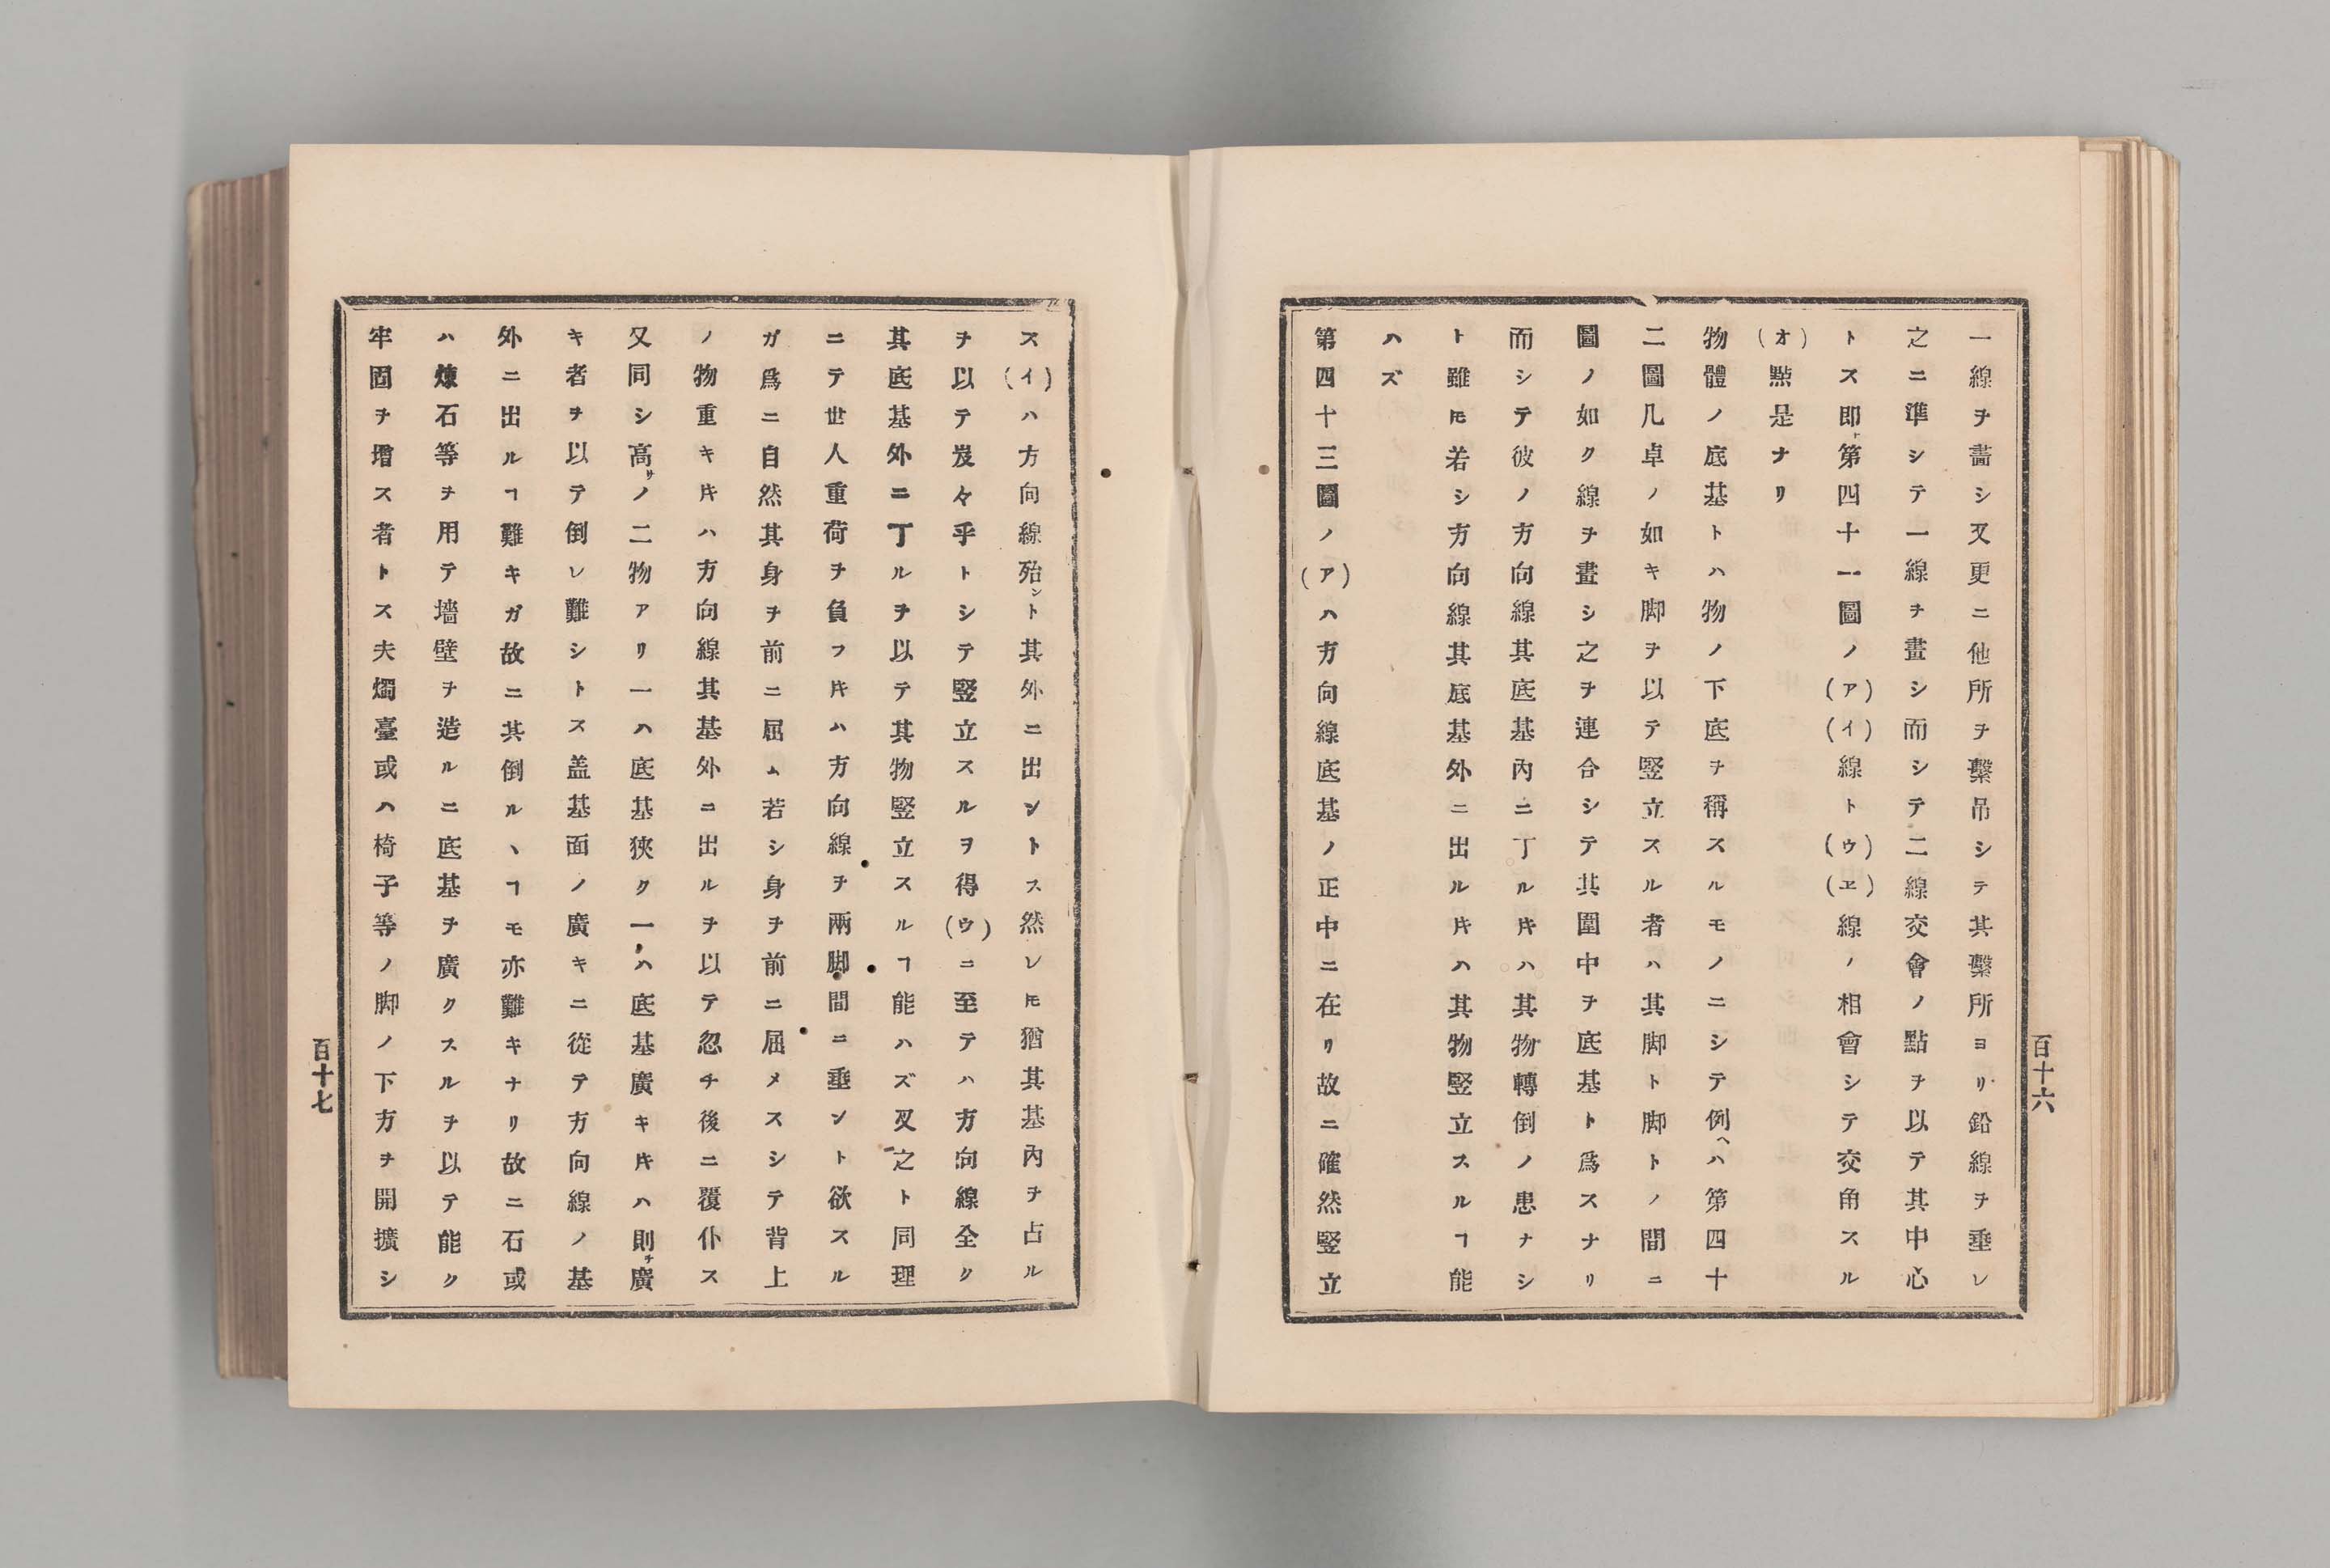 一線ヲ畵シ又更ニ他所ヲ繫吊シテ其繫所ヨリ鉛線ヲ垂レ
之ニ準シテ一線ヲ畫シ而シテ二線交會ノ點ヲ以テ其中心
トス即ト第四十一圖ノ(ア)(イ)線ト(ウ)(ヱ)線ノ相會シテ交角スル
(オ)點是ナリ
物體ノ底基トハ物ノ下底ヲ稱スルモノニシテ例ヘハ第四十
二圖几卓ノ如キ脚ヲ以テ竪立スル者ハ其脚ト脚トノ間ニ
圖ノ如ク線ヲ畫シ之ヲ連合シテ其圍中ヲ底基ト爲スナリ
而シテ彼ノ方向線其底基內ニ丁ルキハ其物轉倒ノ患ナシ
ト雖𪜈若シ方向線其底基外ニ出ルキハ其物竪立スルヿ能
ハズ
第四十三圖ノ(ア)ハ方向線底基ノ正中ニ在リ故ニ確然竪立
百十六
ス(イ)ハ方向線殆ント其外ニ出ントス然レ𪜈猶其基內ヲ占ル
ヲ以テ岌々乎トシテ竪立スルヲ得(ウ)ニ至テハ方向線全ク
其底基外ニ丁ルヲ以テ其物竪立スルヿ能ハズ又之ト同理
ニテ世人重荷ヲ負フキハ方向線ヲ兩脚間ニ垂ント欲スル
ガ爲ニ自然其身ヲ前ニ屈ム若シ身ヲ前ニ屈メスシテ背上
ノ物重キキハ方向線其基外ニ出ルヲ以テ忽チ後ニ覆仆ス
又同シ高サノ二物アリ一ハ底基狹ク一ハ底基廣キキハ則チ廣
キ者ヲ以テ倒レ難シトス盖基面ノ廣キニ從テ方向線ノ基
外ニ出ルヿ難キガ故ニ其倒ルヽヿモ亦難キナリ故ニ石或
ハ煉石等ヲ用テ墻壁ヲ造ルニ底基ヲ廣クスルヲ以テ能ク
牢固ヲ增ス者トス夫燭臺或ハ椅子等ノ脚ノ下方ヲ開擴シ
百十七